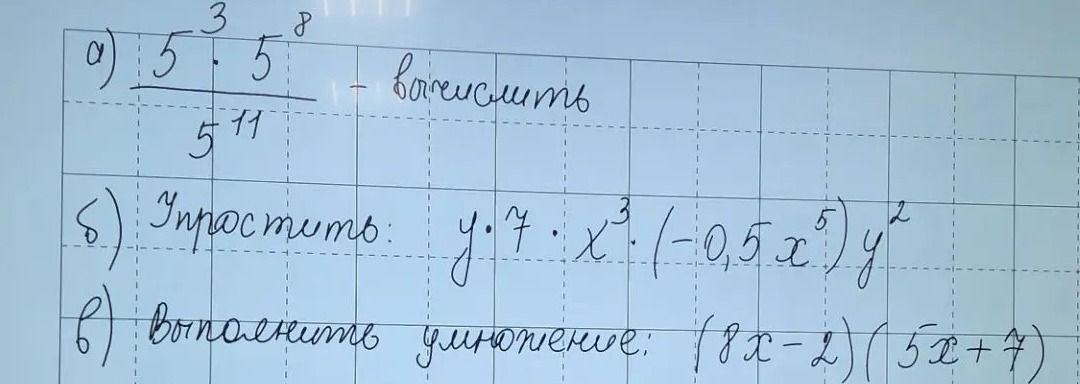 а) 5³ · 5⁸ / 5¹¹ - вычислить
б) Упростить: y · 7 · x³ · (-0,5x⁵)y²
в) Выполнить умножение: (8x - 2)(5x + 7)